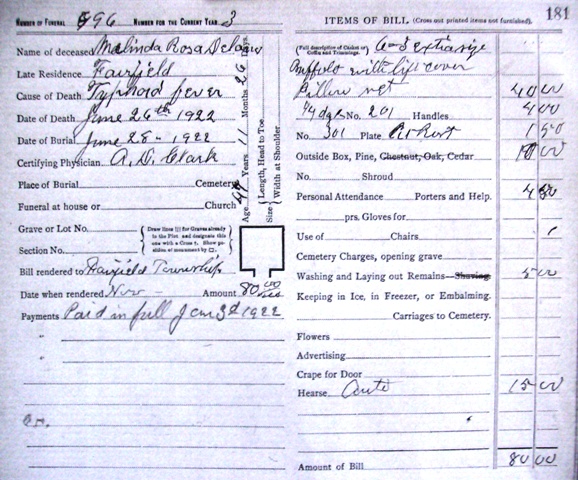 NUMBER OF FUNERAL 596 NUMBER FOR THE CURRENT YEAR 3
Name of deceased Malinda Rosa
Late Residence Fairfield
Cause of Death Typhoid fever
Date of Death June 26th 1922
Date of Burial June 28 - 1922
Certifying Physician A. D. Clark
Place of Burial Cemetery
Funeral at house or Church
Grave or Lot No.
Section No.
{ Draw lines for Graves already in the Plot and designate this one with a Cross †. Show position of monument by □. }
Bill rendered to Fairfield Township
Date when rendered Nov - Amount 80 00
Payments Paid in full Jan 3d 1922
Age Years 11 Months 26 Days
Size { Length, Head to Toe
Width at Shoulder
ITEMS OF BILL (Cross out printed items not furnished). 181
(Full description of Casket or Coffin and Trimmings. 6-3 extra size
Buffalo with lift cover
Pillow net 40 00
No. 201 Handles 4 00
No. 301 Plate At Rest 1 50
Outside Box, Pine, Chestnut, Oak, Cedar 10 00
No. Shroud
Personal Attendance Porters and Help. 4 50
prs. Gloves for
Use of Chairs.
Cemetery Charges, opening grave
Washing and Laying out Remains—Shaving. 5 00
Keeping in Ice, in Freezer, or Embalming.
Carriages to Cemetery.
Flowers
Advertising
Crape for Door
Hearse Auto 15 00
Amount of Bill 80 00